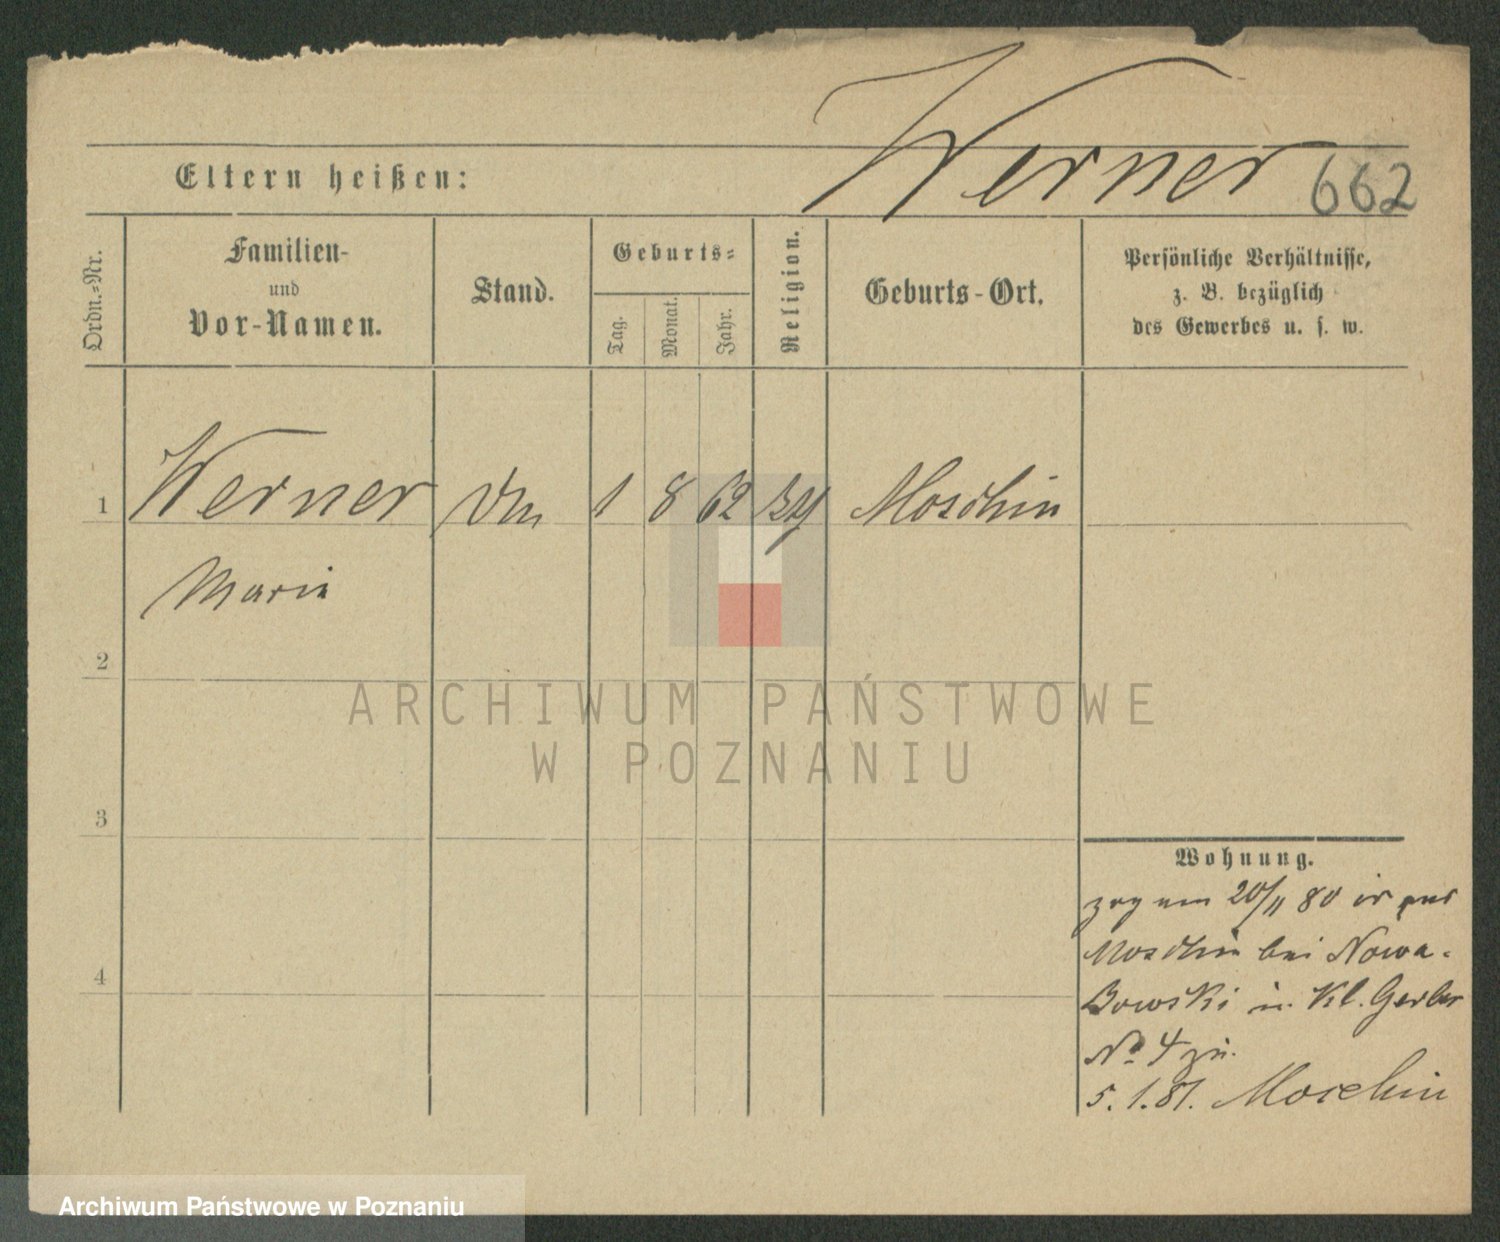 Werner 662
Eltern heißen:
Ordn.-Nr.
Familien-
und
Vor-Namen.
Stand.
Geburts-
Tag.
Monat.
Jahr.
Religion.
Geburts-Ort.
Persönliche Verhältnisse,
z. B. bezüglich
des Gewerbes u. s. w.
1 Werner 1 8 62 Moschin
Marie
2
ARCHIWUM PAŃSTWOWE
W POZNANIU
3
Wohnung.
zog am 20/11 80 aus
Moschin bei Nowa-
kowski in Kl. Gerber
No 4 zu.
4
5. 1. 81. Moschin
Archiwum Państwowe w Poznaniu